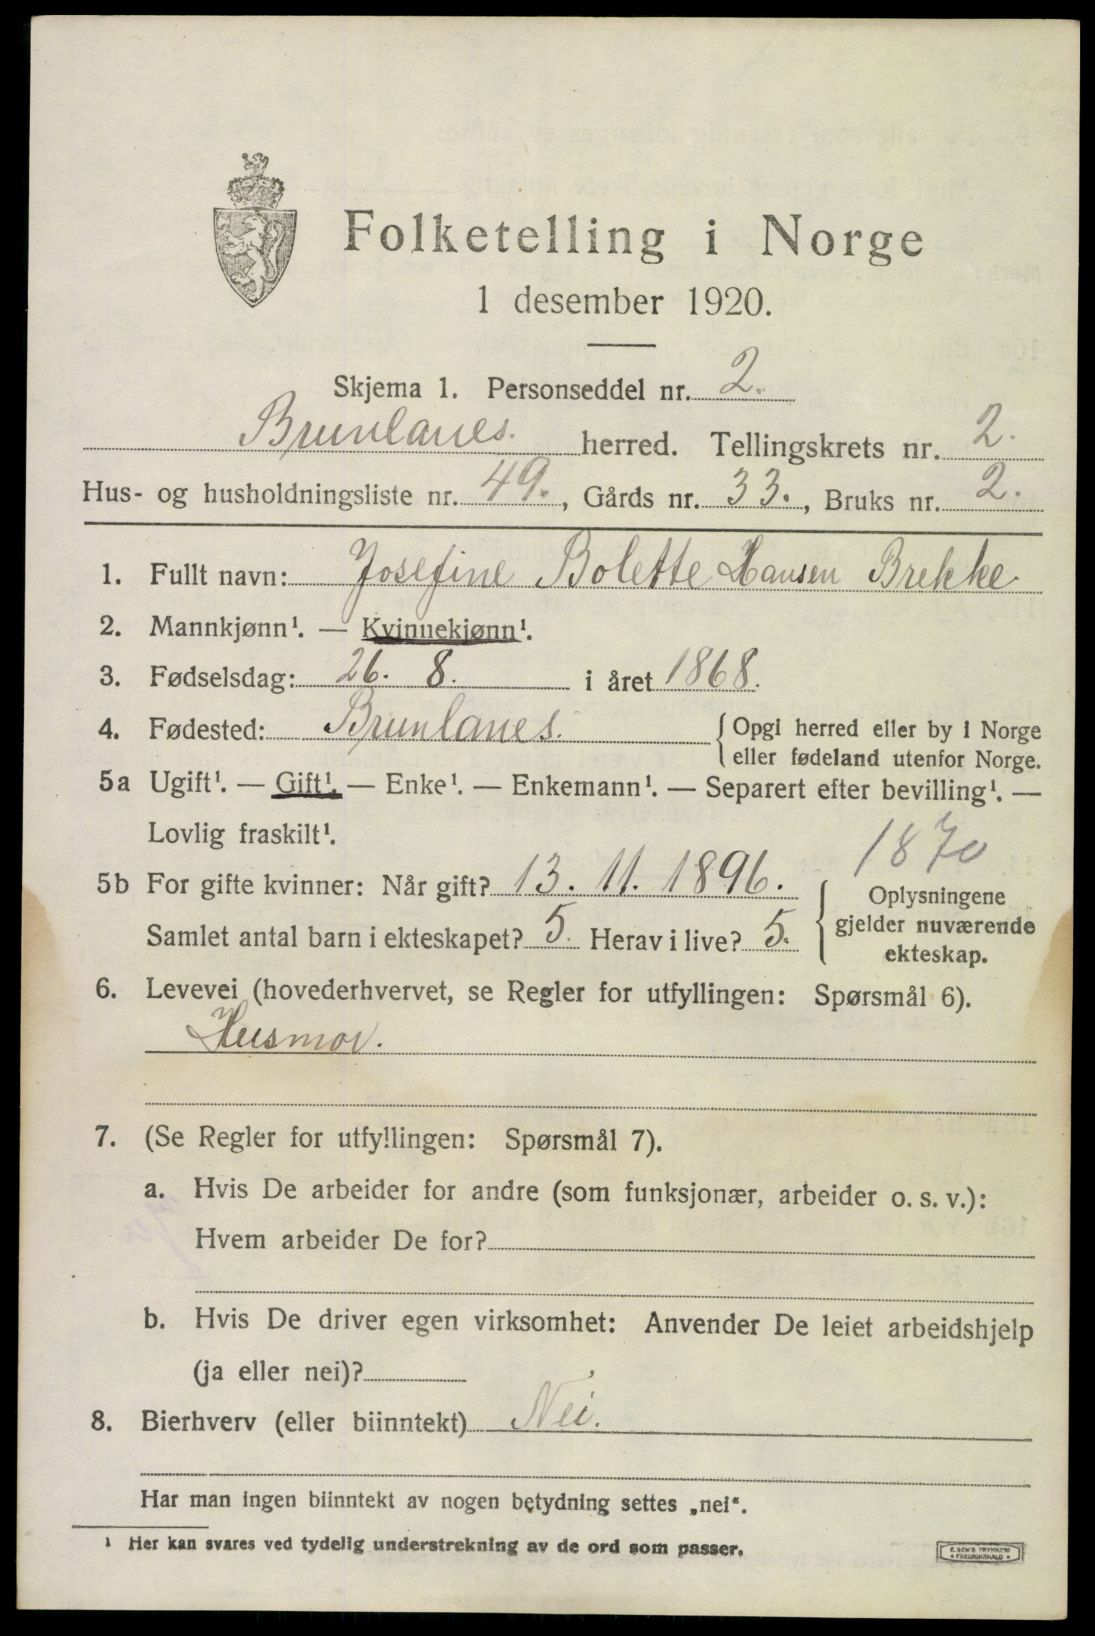 Folketelling i Norge
1 desember 1920.
Skjema 1. Personseddel nr. 2.
Brunlanes. herred. Tellingskrets nr. 2.
Hus- og husholdningsliste nr. 49., Gårds nr. 33., Bruks nr. 2.
1. Fullt navn: Josefine Bolette Hansen Brekke
2. Mannkjønn¹. — Kvinnekjønn¹.
3. Fødselsdag: 26. 8. i året 1868.
4. Fødested: Brunlanes. { Opgi herred eller by i Norge
eller fødeland utenfor Norge.
5a Ugift¹. — Gift¹. — Enke¹. — Enkemann¹. — Separert efter bevilling¹. —
Lovlig fraskilt¹.
1870
5b For gifte kvinner: Når gift? 13. 11. 1896. { Oplysningene
gjelder nuværende
Samlet antal barn i ekteskapet? 5. Herav i live? 5.
ekteskap.
6. Levevei (hovederhvervet, se Regler for utfyllingen: Spørsmål 6).
Husmor.
7. (Se Regler for utfyllingen: Spørsmål 7).
a. Hvis De arbeider for andre (som funksjonær, arbeider o. s. v.):
Hvem arbeider De for?
b. Hvis De driver egen virksomhet: Anvender De leiet arbeidshjelp
(ja eller nei)?
8. Bierhverv (eller biinntekt) Nei.
Har man ingen biinntekt av nogen betydning settes „nei".
¹ Her kan svares ved tydelig understrekning av de ord som passer.
E. SEM'S TRYKKERI
FREDRIKSHALD